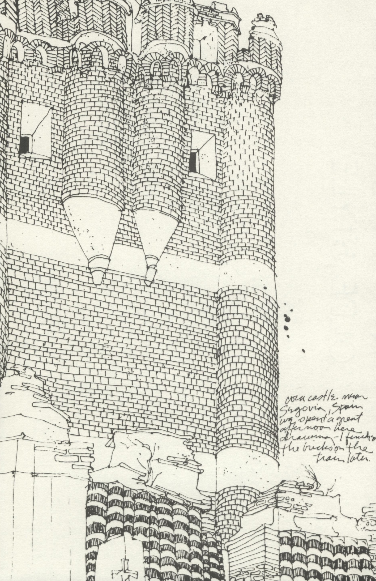 coca castle near
Segovia, Spain
we spent a great
afternoon here
drawing - I finished
the bricks on the
train later.